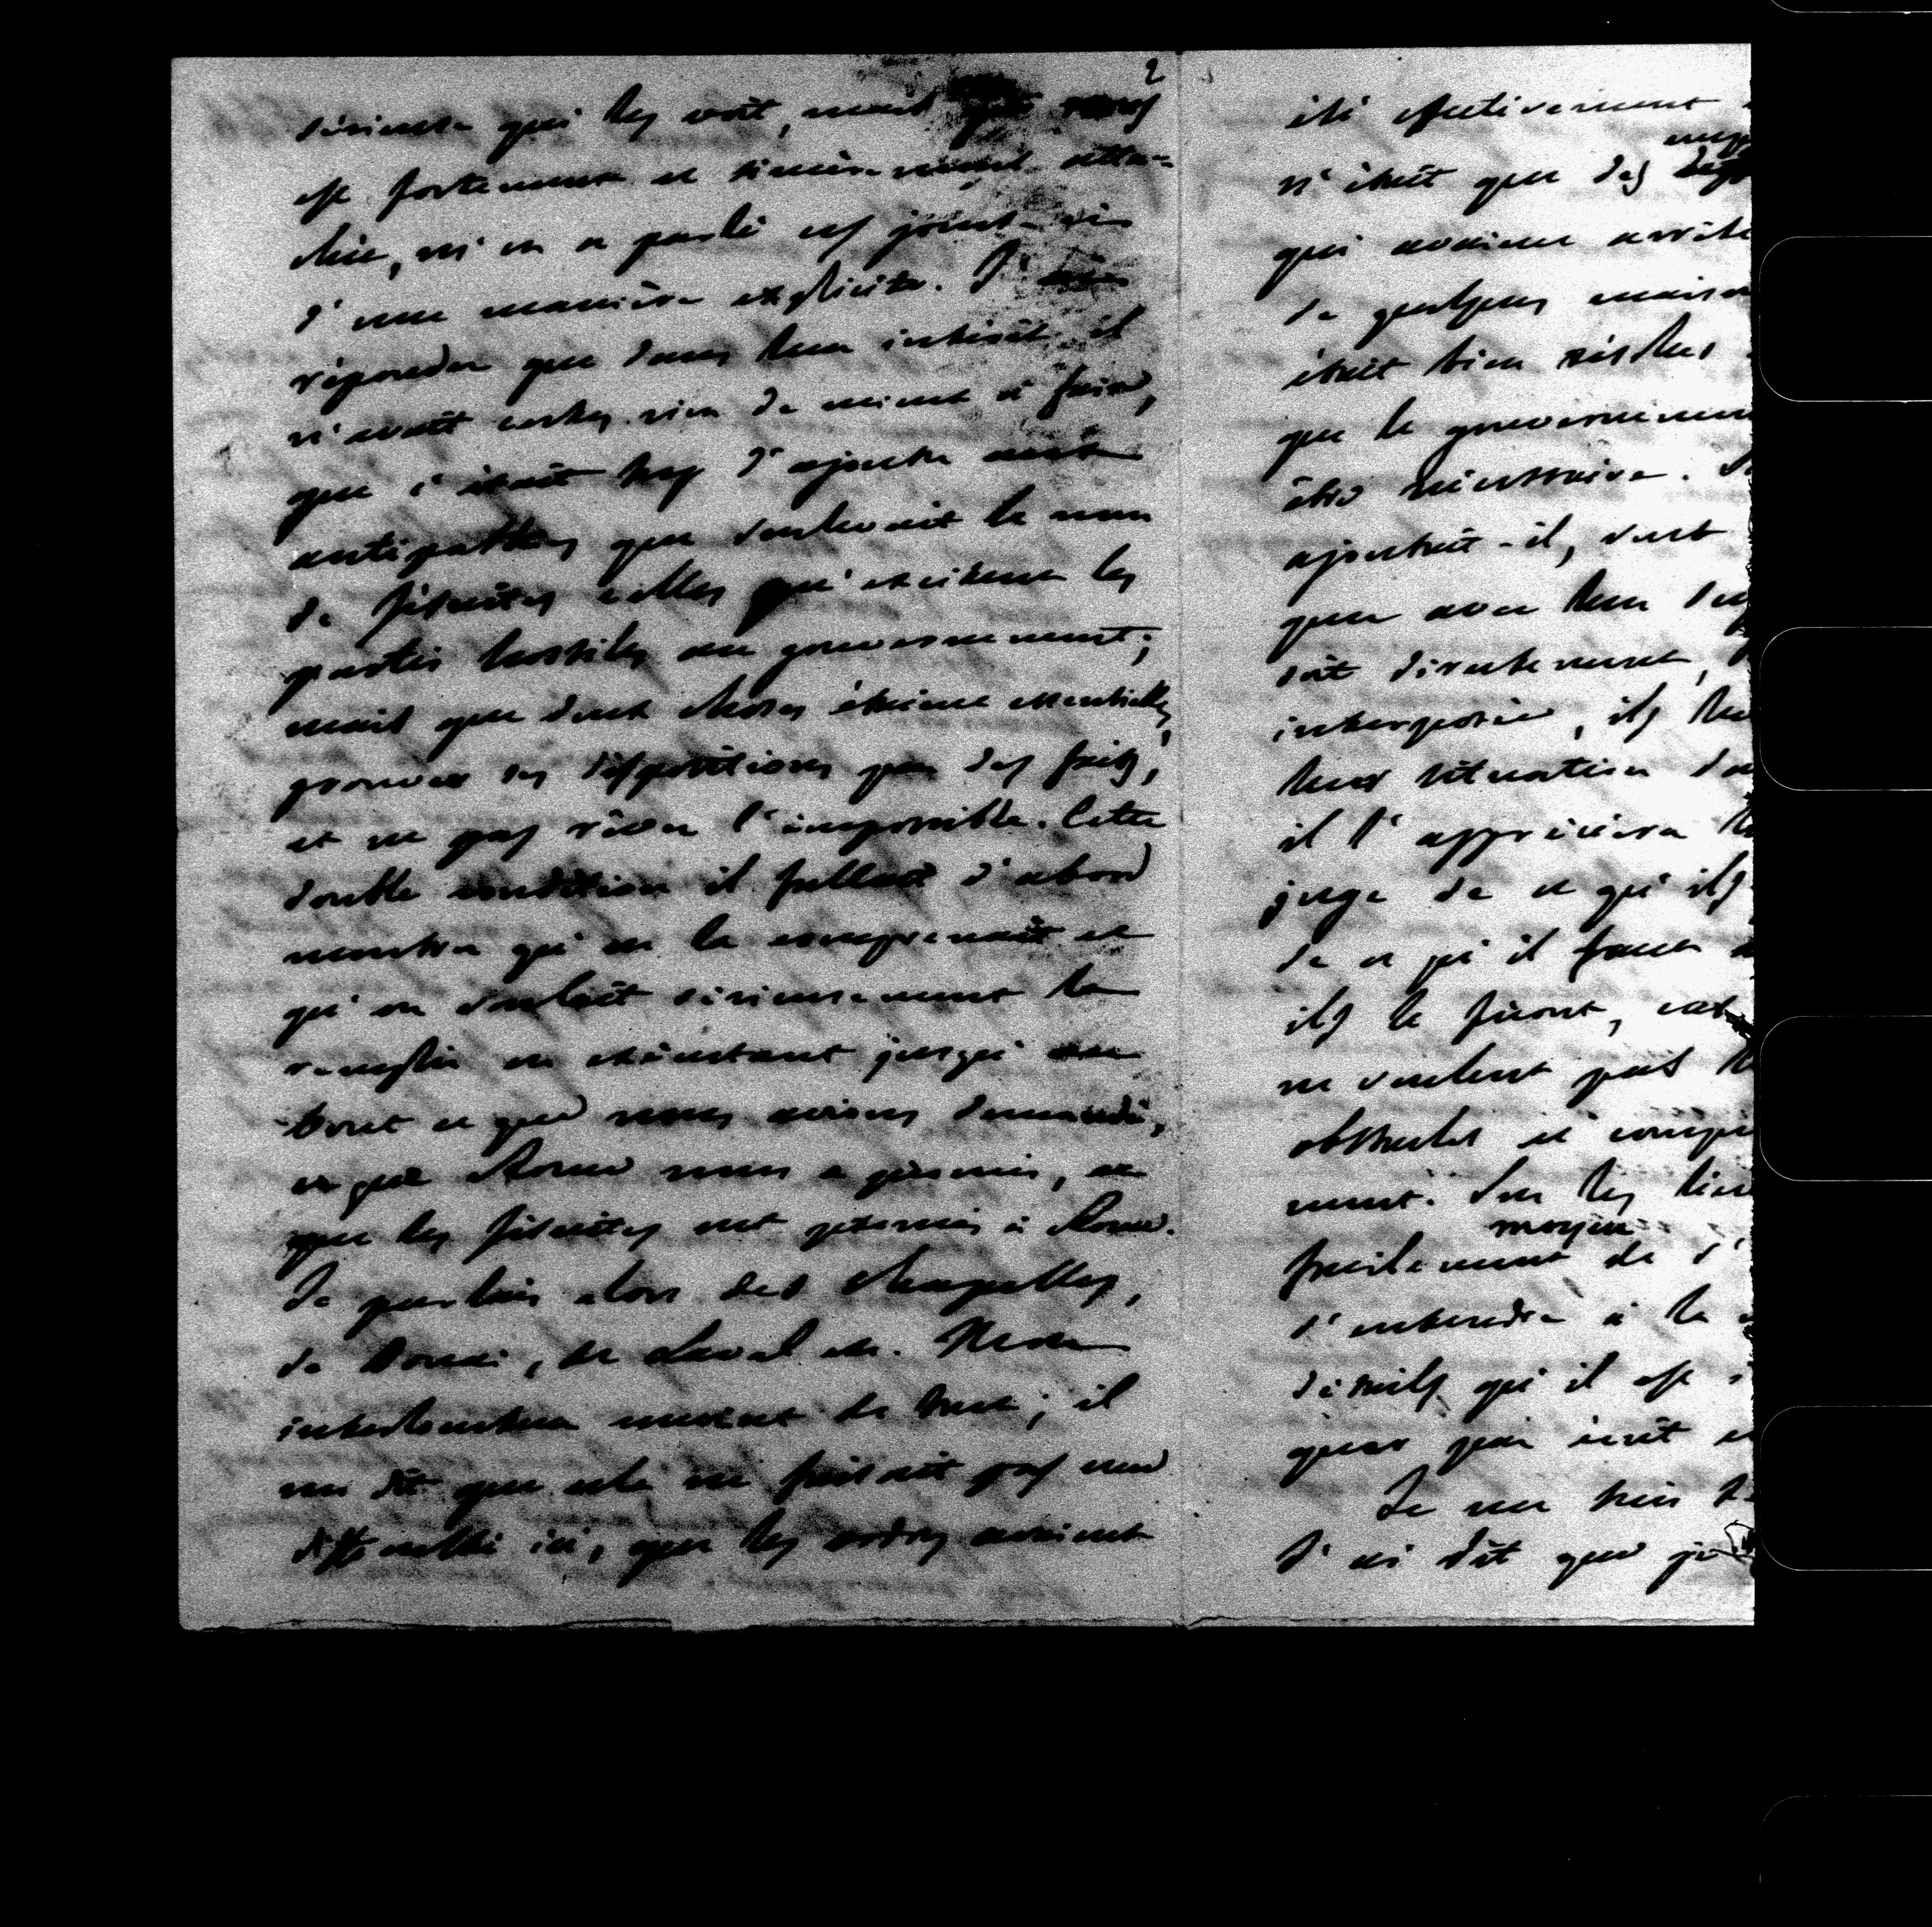 2
sérieuse qui les voit, mais qui nous
est fortement et sincèrement atta-
chée, m'en a parlé ces jours-ci
d'une manière explicite. J'ai
répondu que dans leur intérêt il
n'avait certes rien de mieux à faire,
que c'était trop d'ajouter aux
antipathies que soulevait le nom
de Jésuites celles qu'excitent les
partis hostiles au gouvernement;
mais que deux choses étaient essentielles,
prouver ses dispositions par des faits,
et ne pas rêver l'impossible. Cette
double condition il fallait d'abord
montrer qu'on la comprenait et
qu'on voulait sérieusement la
remplir en exécutant jusqu'au
bout ce que nous avions demandé,
ce que Rome nous a promis, ce
que les Jésuites ont promis à Rome.
Je parlais alors des chapelles,
de Douai, de Laval etc. Mon
interlocuteur convint de tout; il
me dit que cela ne faisait pas une
difficulté ici, que les ordres avaient
été effectivement
n'était que des
qui avaient arrêté
de quelques
était bien résolus
que le gouvernement
être nécessaire.
ajoutait-il, sont
que avec leur
soit directement,
interposée, ils
leur situation
il l'appréciera
juge de ce qu'ils
de ce qu'il faut
ils le feront, car
ne veulent pas
obstacles et
ment. Sur les
moyen
facilement de s'
s'entendre à la
détails qu'il est
quer par écrit
Je me suis
J'ai dit que je